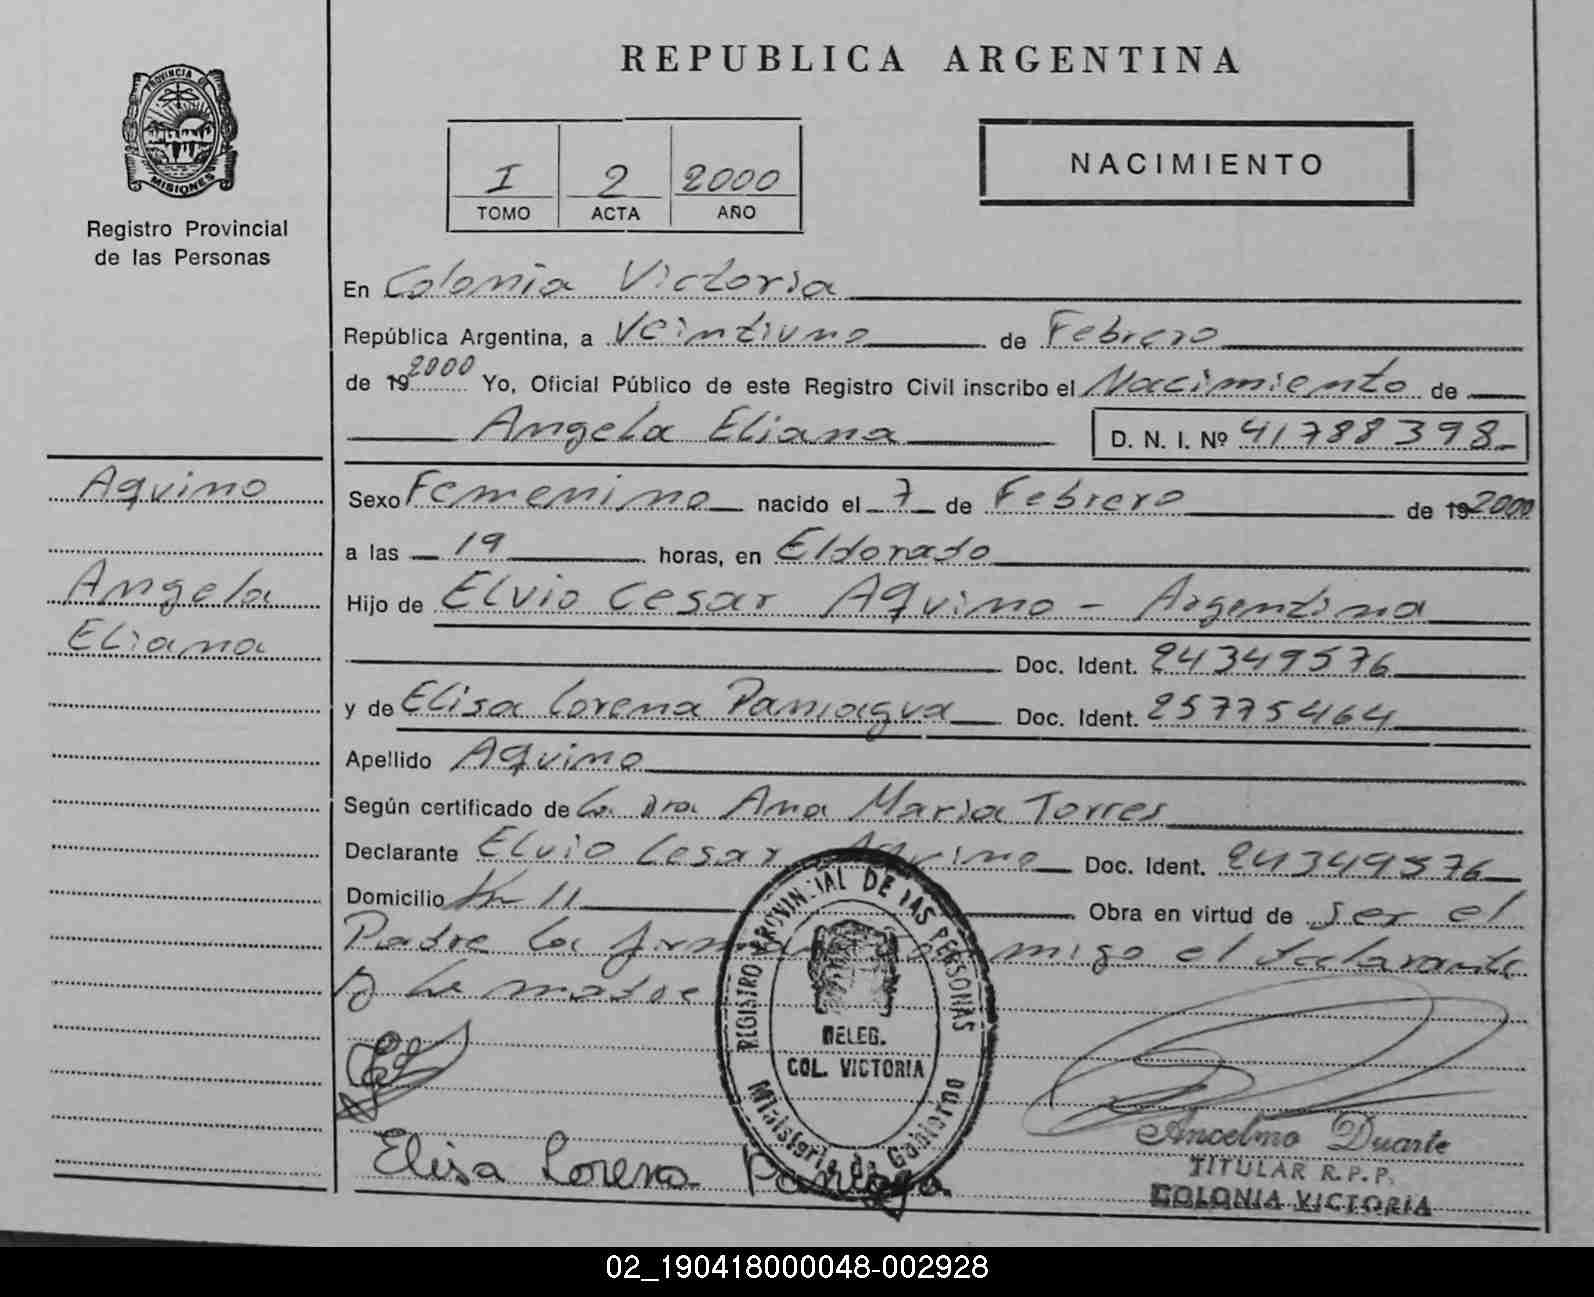 REPUBLICA ARGENTINA
PROVINCIA DE
MISIONES
Registro Provincial
de las Personas
I 2 2000
TOMO ACTA AÑO
NACIMIENTO
En Colonia Victoria
República Argentina, a Veintiuno de Febrero
de 19 2000 Yo, Oficial Público de este Registro Civil inscribo el Nacimiento de
Angela Eliana D. N. I. Nº 41788398
Aquino
Angela
Eliana
Sexo Femenino nacido el 7 de Febrero de 19 2000
a las 19 horas, en Eldorado
Hijo de Elvio Cesar Aquino - Argentina
Doc. Ident. 24349576
y de Elisa Lorena Paniagua Doc. Ident. 25775464
Apellido Aquino
Según certificado de la Dra Ana Maria Torres
Declarante Elvio Cesar Aquino Doc. Ident. 24349576
Domicilio Km 11 Obra en virtud de ser el
Padre la firman conmigo el declarante
y la madre
REGISTRO PROVINCIAL DE LAS PERSONAS
DELEG.
COL. VICTORIA
Ministerio de Gobierno
Elisa Lorena
Ancelmo Duarte
TITULAR R.P.P.
COLONIA VICTORIA
02_190418000048-002928